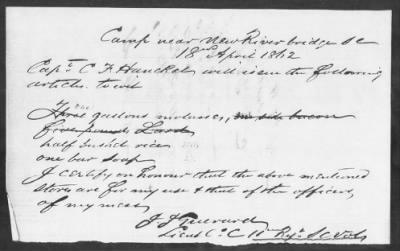 Camp near New River bridge SC
18th April 1862
Capt C F Hanckel will issue the following
articles to wit
Three gallons molasses, one side bacon
five pounds Lard
half bushel rice
one bar soap
I certify on honour that the above mentioned
stores are for my use & that of the officers
of my mess,
J J Guerard
Lieut Co C 11 Regt SC Vols